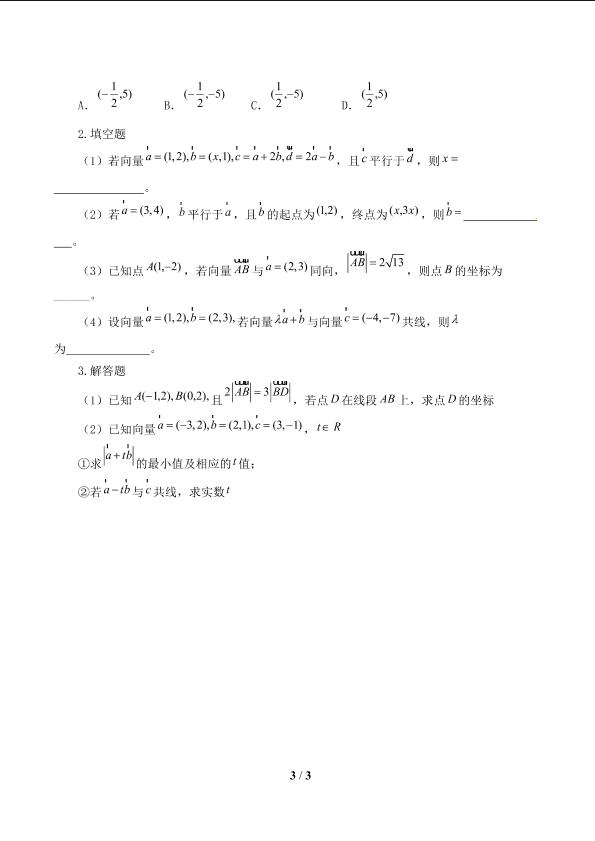 A. (-1/2,5) B. (-1/2,-5) C. (1/2,-5) D. (1/2,5)
2.填空题
（1）若向量a⃗ = (1,2), b⃗ = (x,1), c⃗ = a⃗ + 2b⃗, d⃗ = 2a⃗ − b⃗，且c⃗平行于d⃗，则x =
_______________。
（2）若a⃗ = (3,4)，b⃗平行于a⃗，且b⃗的起点为(1,2)，终点为(x,3x)，则b⃗ = ____________
___。
（3）已知点A(1,−2)，若向量AB⃗与a⃗ = (2,3)同向，|AB⃗| = 2√13，则点B的坐标为
______。
（4）设向量a⃗ = (1,2), b⃗ = (2,3),若向量λa⃗ + b⃗与向量c⃗ = (−4,−7)共线，则λ
为______________。
3.解答题
（1）已知A(−1,2), B(0,2),且2|AB⃗| = 3|BD⃗|，若点D在线段AB上，求点D的坐标
（2）已知向量a⃗ = (−3,2), b⃗ = (2,1), c⃗ = (3,−1)，t∈ R
①求|a⃗ + tb⃗|的最小值及相应的t值；
②若a⃗ − tb⃗与c⃗共线，求实数t
3 / 3